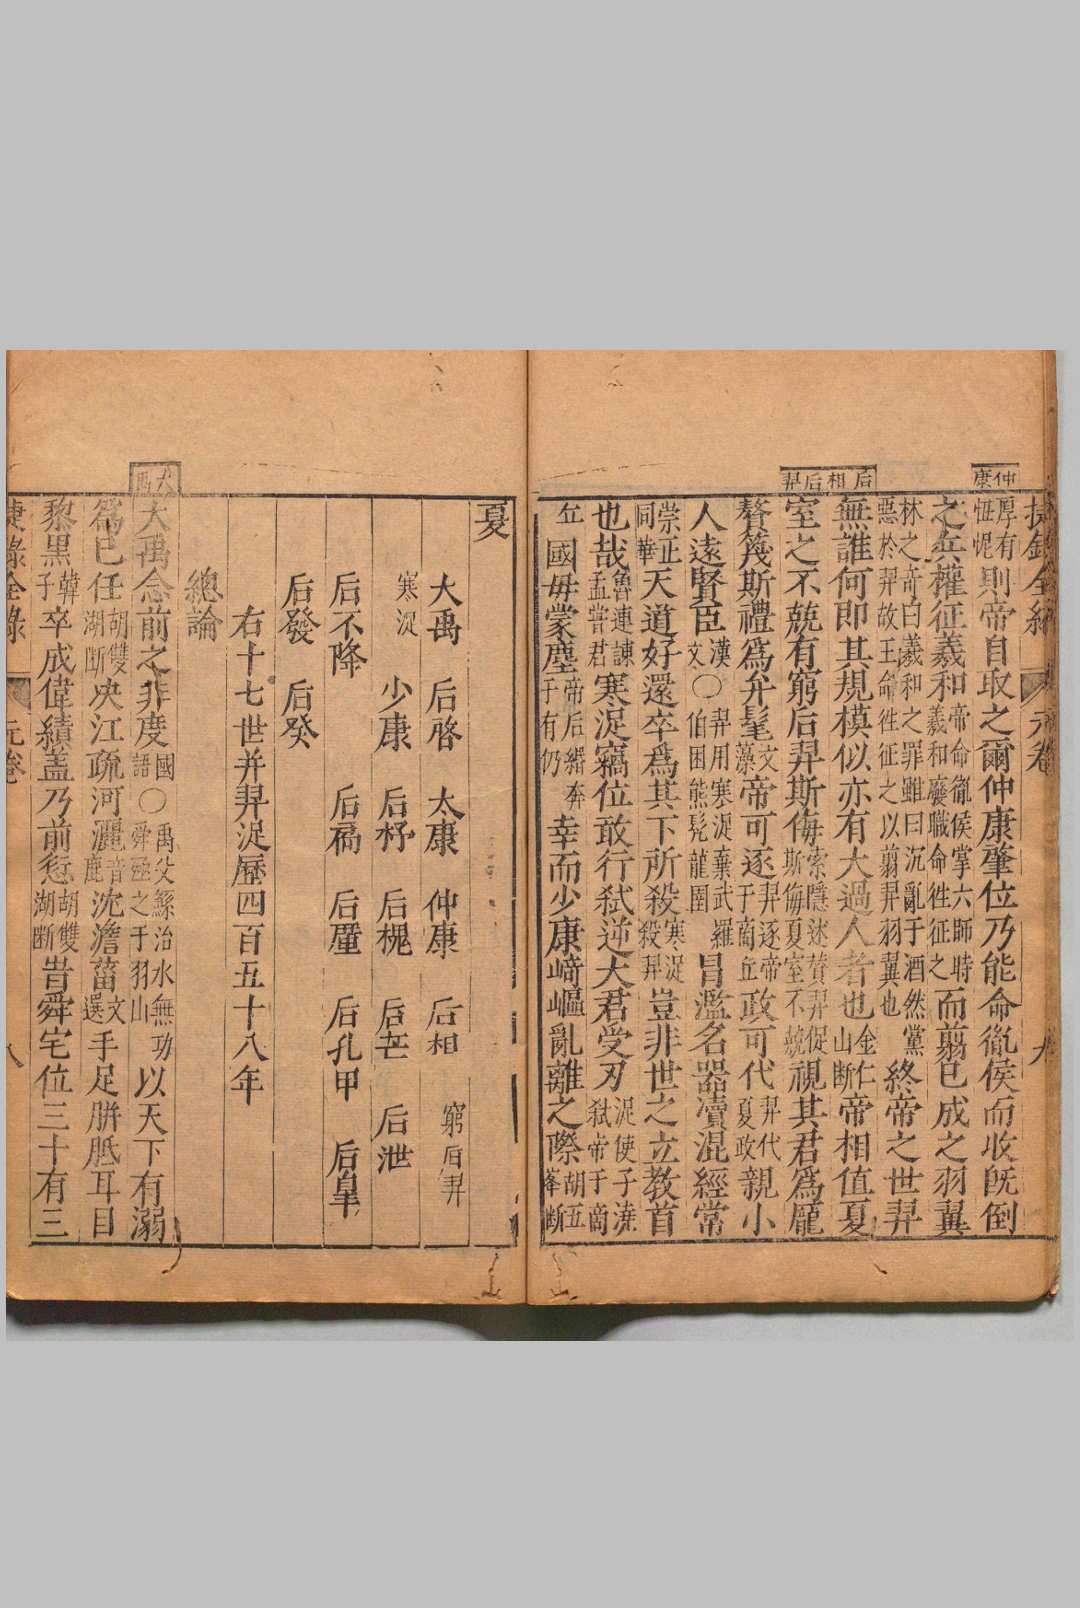 仲康
厚有忸怩則帝自取之爾仲康肇位乃能命胤侯而收旣倒
之兵權征羲和帝命胤侯掌六師時羲和廢職命徃征之而翦巳成之羽翼
林之奇曰羲和之罪雖曰沉亂于酒然黨惡於羿故王命徃征之以翦羿羽翼也終帝之世羿
后相后羿
無誰何即其規模似亦有大過人者也金仁山斷帝相值夏
室之不兢有窮后羿斯侮索隱述贊羿促斯侮夏室不兢視其君爲龐
贅篾斯禮爲弁髦文藻帝可逐羿逐帝于啇丘政可代羿代夏政親小
人遠賢臣漢文〇羿用寒浞棄武羅伯困熊髡龍圉冒濫名器瀆混經常
崇正同華天道好還卒爲其下所殺寒浞殺羿豈非世之立教首
也哉魯連諫孟嘗君寒浞竊位敢行弑逆大君受刃浞使子澆弑帝于啇
丘國毋蒙塵帝后緡奔于有仍幸而少康﨑嶇亂離之際胡五峯斷
夏
大禹 后啓 太康 仲康 后相 窮后羿
寒浞 少康 后杼 后槐 后芒 后泄
后不降 后扃 后廑 后孔甲 后皐
后發 后癸
右十七世并羿浞歷四百五十八年
總論
大禹念前之非度國語〇禹父鯀治水無功舜殛之于羽山以天下有溺
爲巳任胡雙湖斷决江疏河灑音鹿沈澹菑文選手足胼胝耳目
黎黑韓子卒成偉績蓋乃前愆胡雙湖斷昔舜宅位三十有三
捷錄全錄 元卷 八